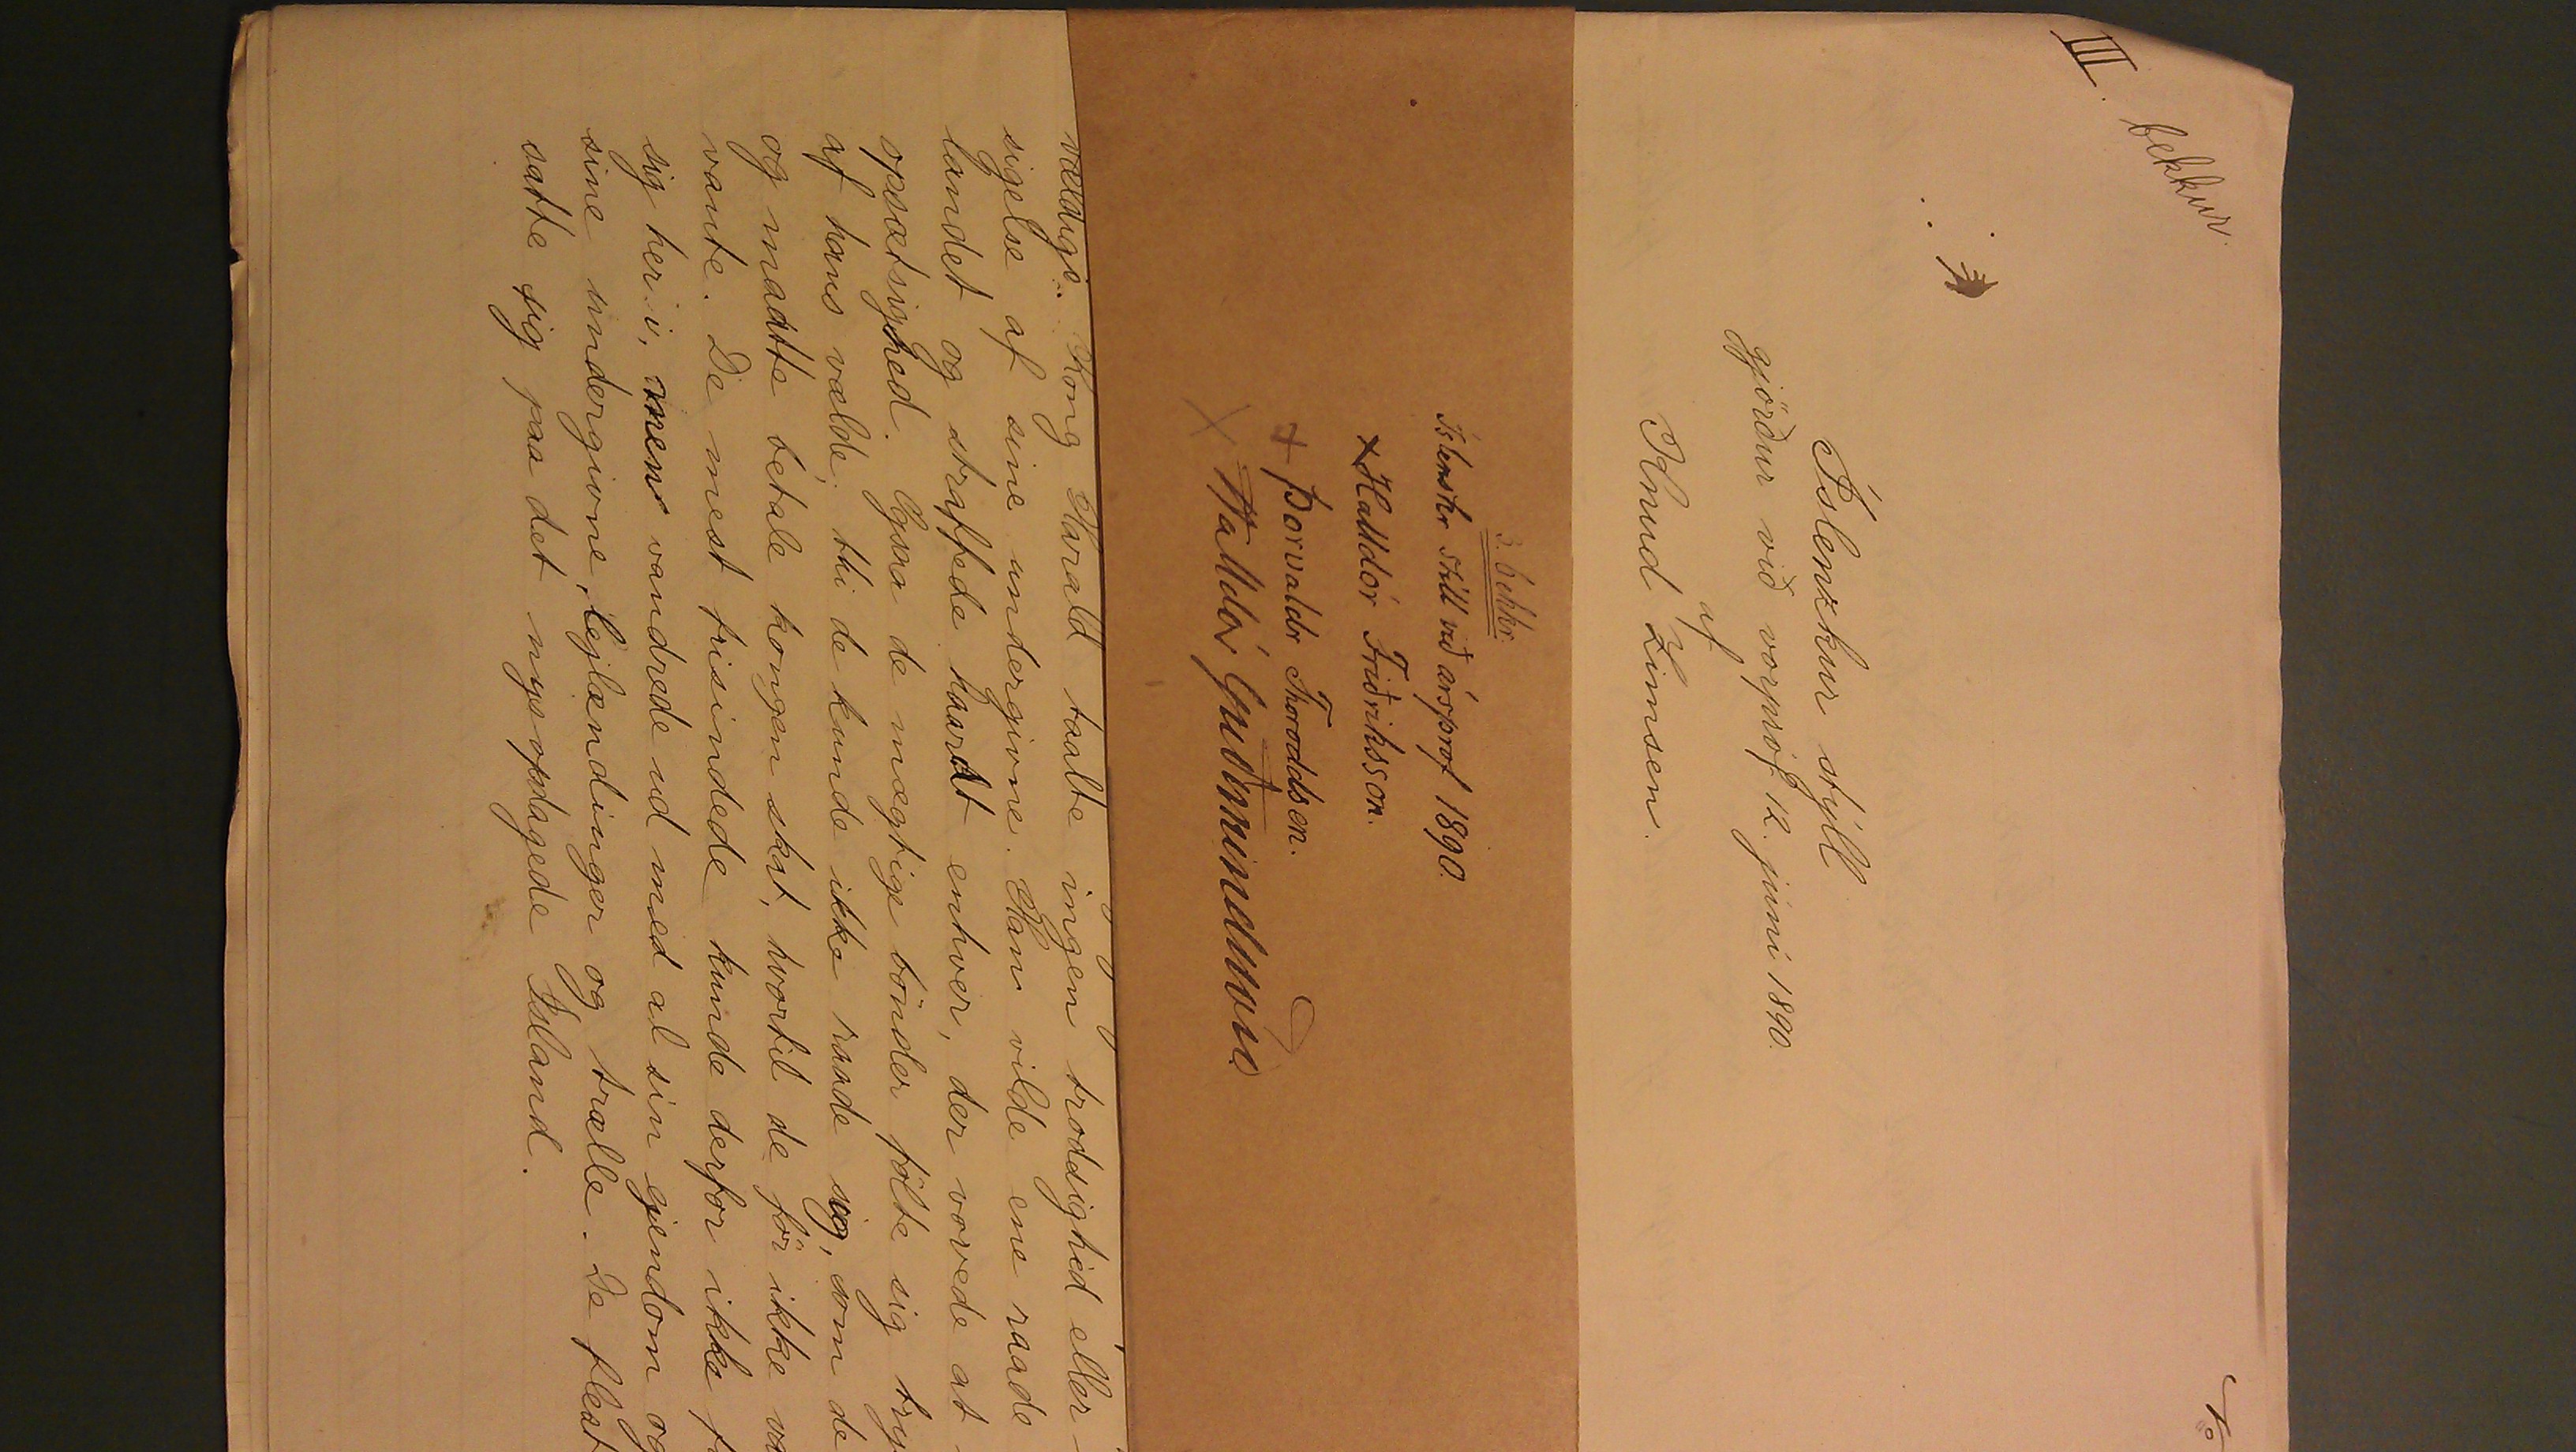 III. bekkur.
Íslenzkur stýll
gjörður við vorpróf 12. júní 1890.
af
Knud Zimsen.
3. bekkr.
Íslenskr stíll við ársprof 1890.
x Halldór Friðriksson.
+ Þorvaldr Thoroddsen.
x Halldór Guðmundsson
vældige. Kong Harald taalte ingen trodsighed eller
sigelse af sine undergivne. Han vilde ene raade
landet og straffede haardt enhver, der vovede at
opsætsighed. Ogsaa de mægtige bönder fölte sig try
af hans vælde; thi de kunde ikke raade sig, som de
og maatte betale kongen skat, hvortil de för ikke va
vante. De mest frisindede kunde derfor ikke f
sig her i, men vandrede ud med al sin ejendom og
sine undergivne, lejlændinger og trælle. De flest
satte sig paa det nysopdagede Island.